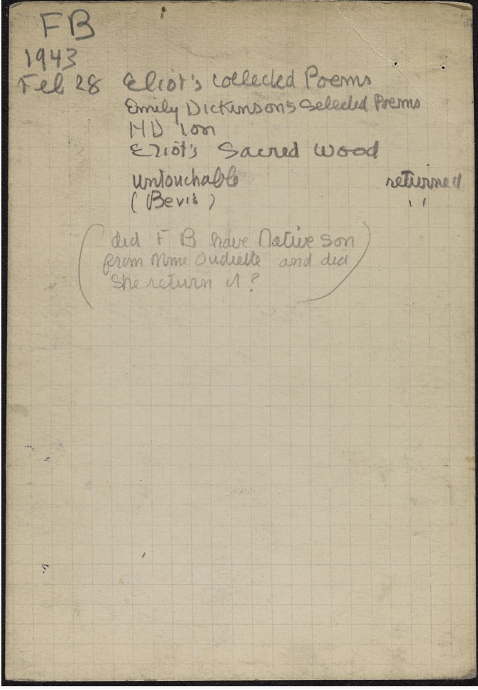 FB
1943
Feb 28 Eliot's Collected Poems
Emily Dickinson's Selected Poems
HD Ion
Eliot's Sacred Wood
Untouchable returned
(Bevis) ''
(did F B have Native Son
from Mme Oudielle and did
she return it?)